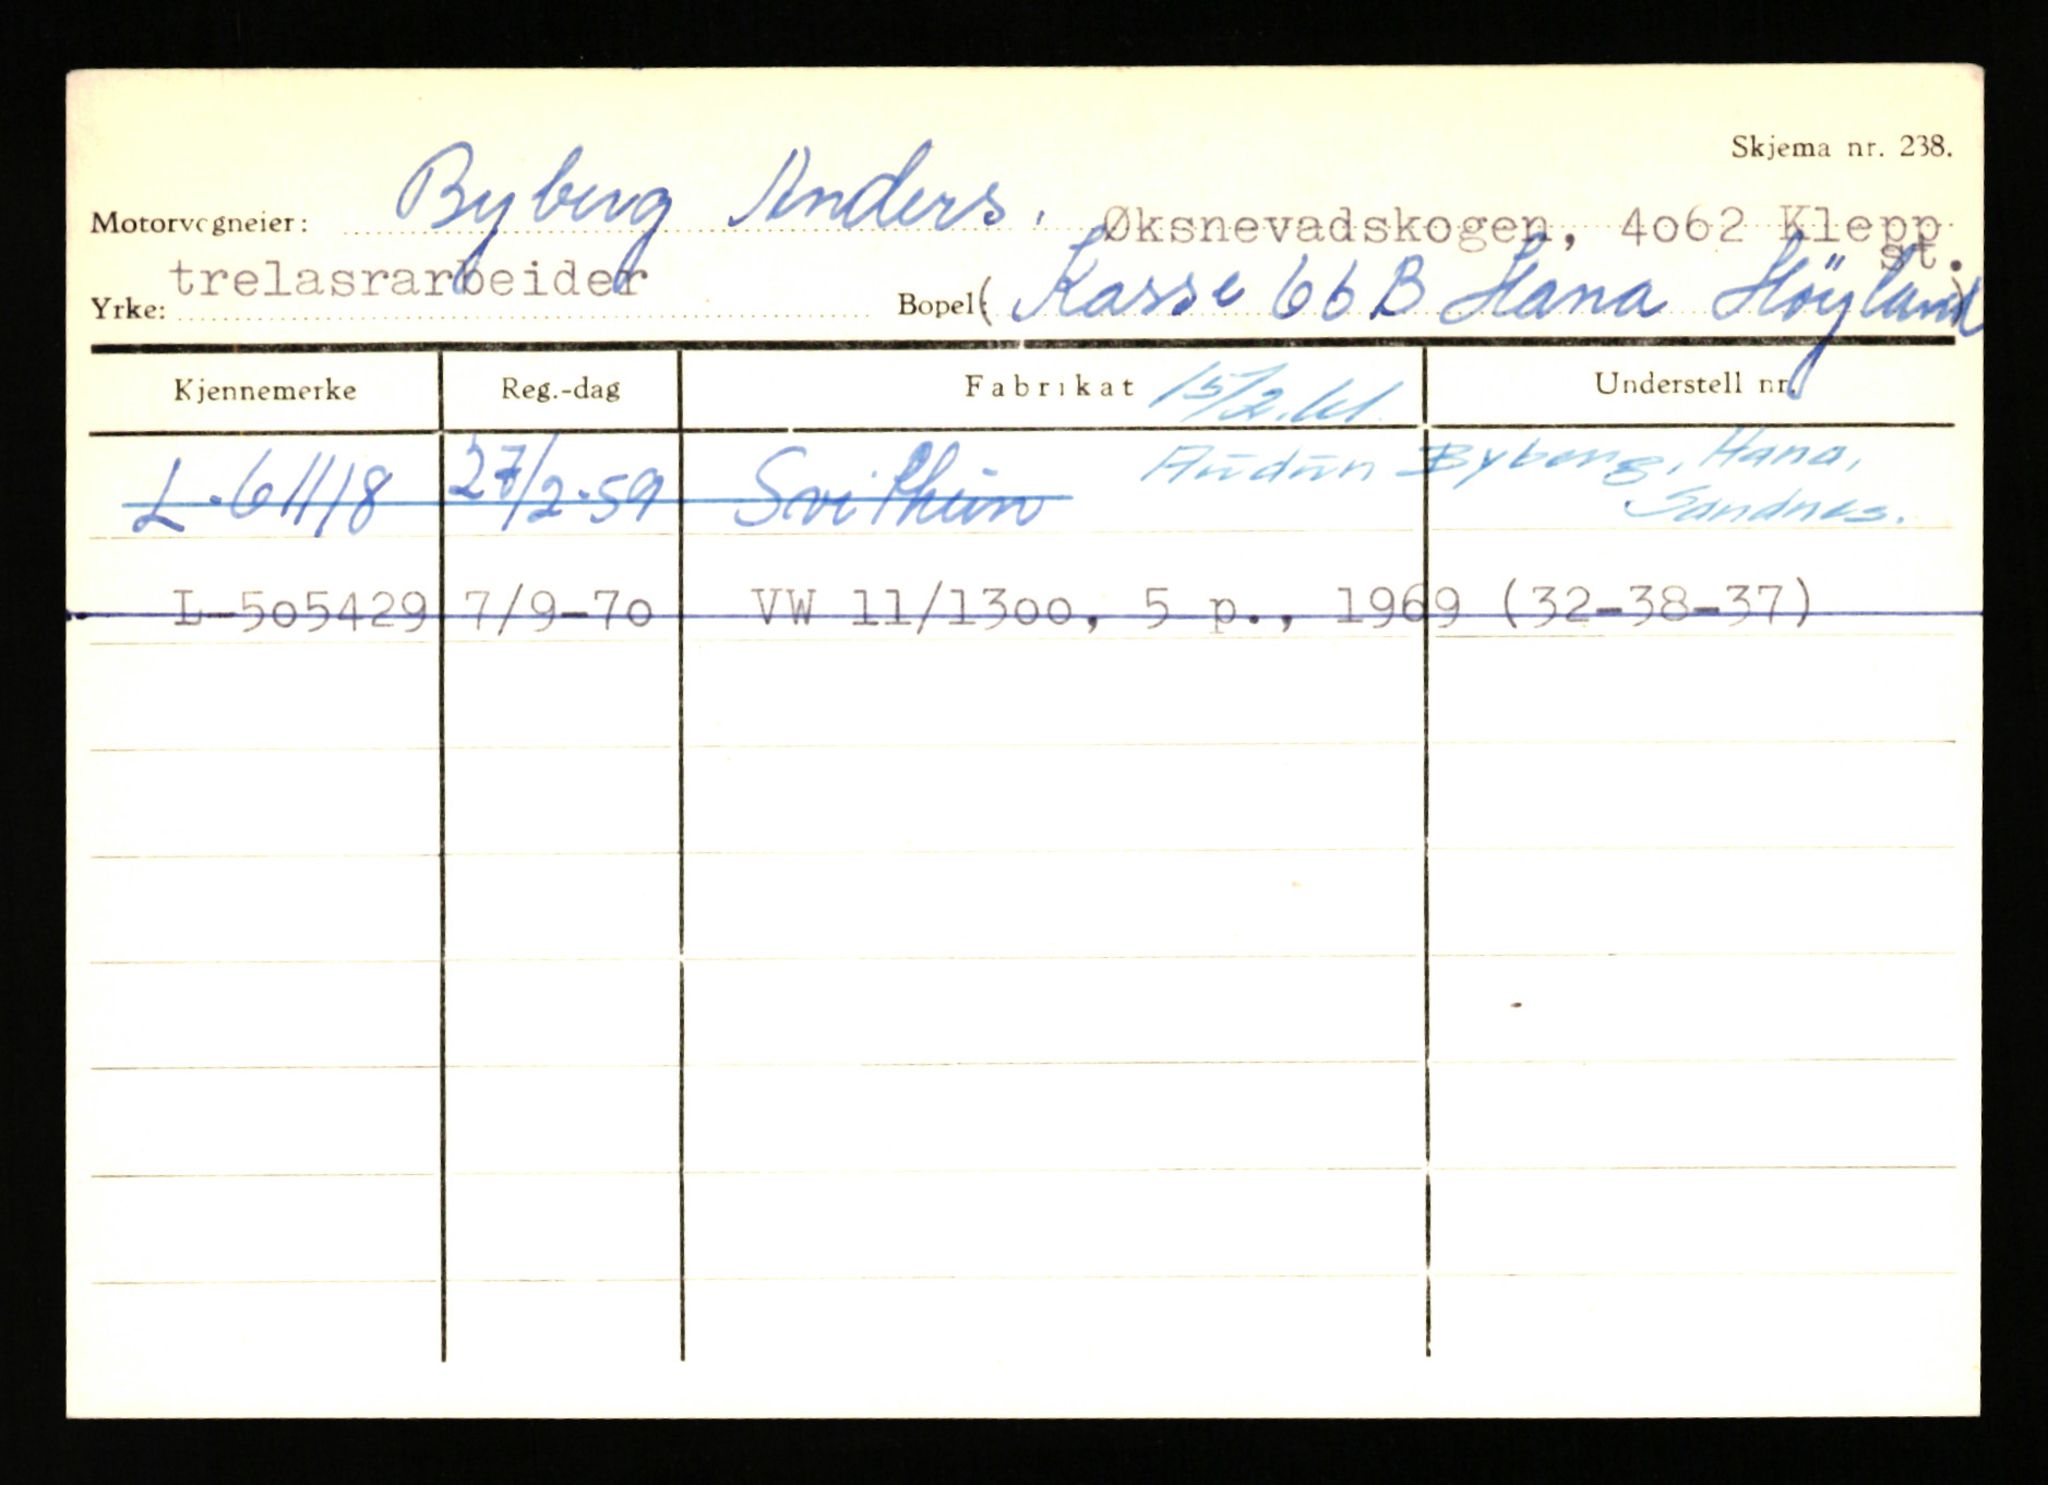 Skjema nr. 238.
Motorvogneier: Byberg Anders. Øksnevadskogen, 4o62 Klepp
st.
trelasrarbeider
Yrke: Bopel: (Kasse 66 B Hana Höyland)
Kjennemerke Reg.-dag Fabrikat 15/2.61. Understell nr.
L-61118 27/2-59 Svithun Audun Byberg, Hana,
Sandnes.
L-5o5429 7/9-7o VW 11/13oo, 5 p., 1969 (32-38-37)